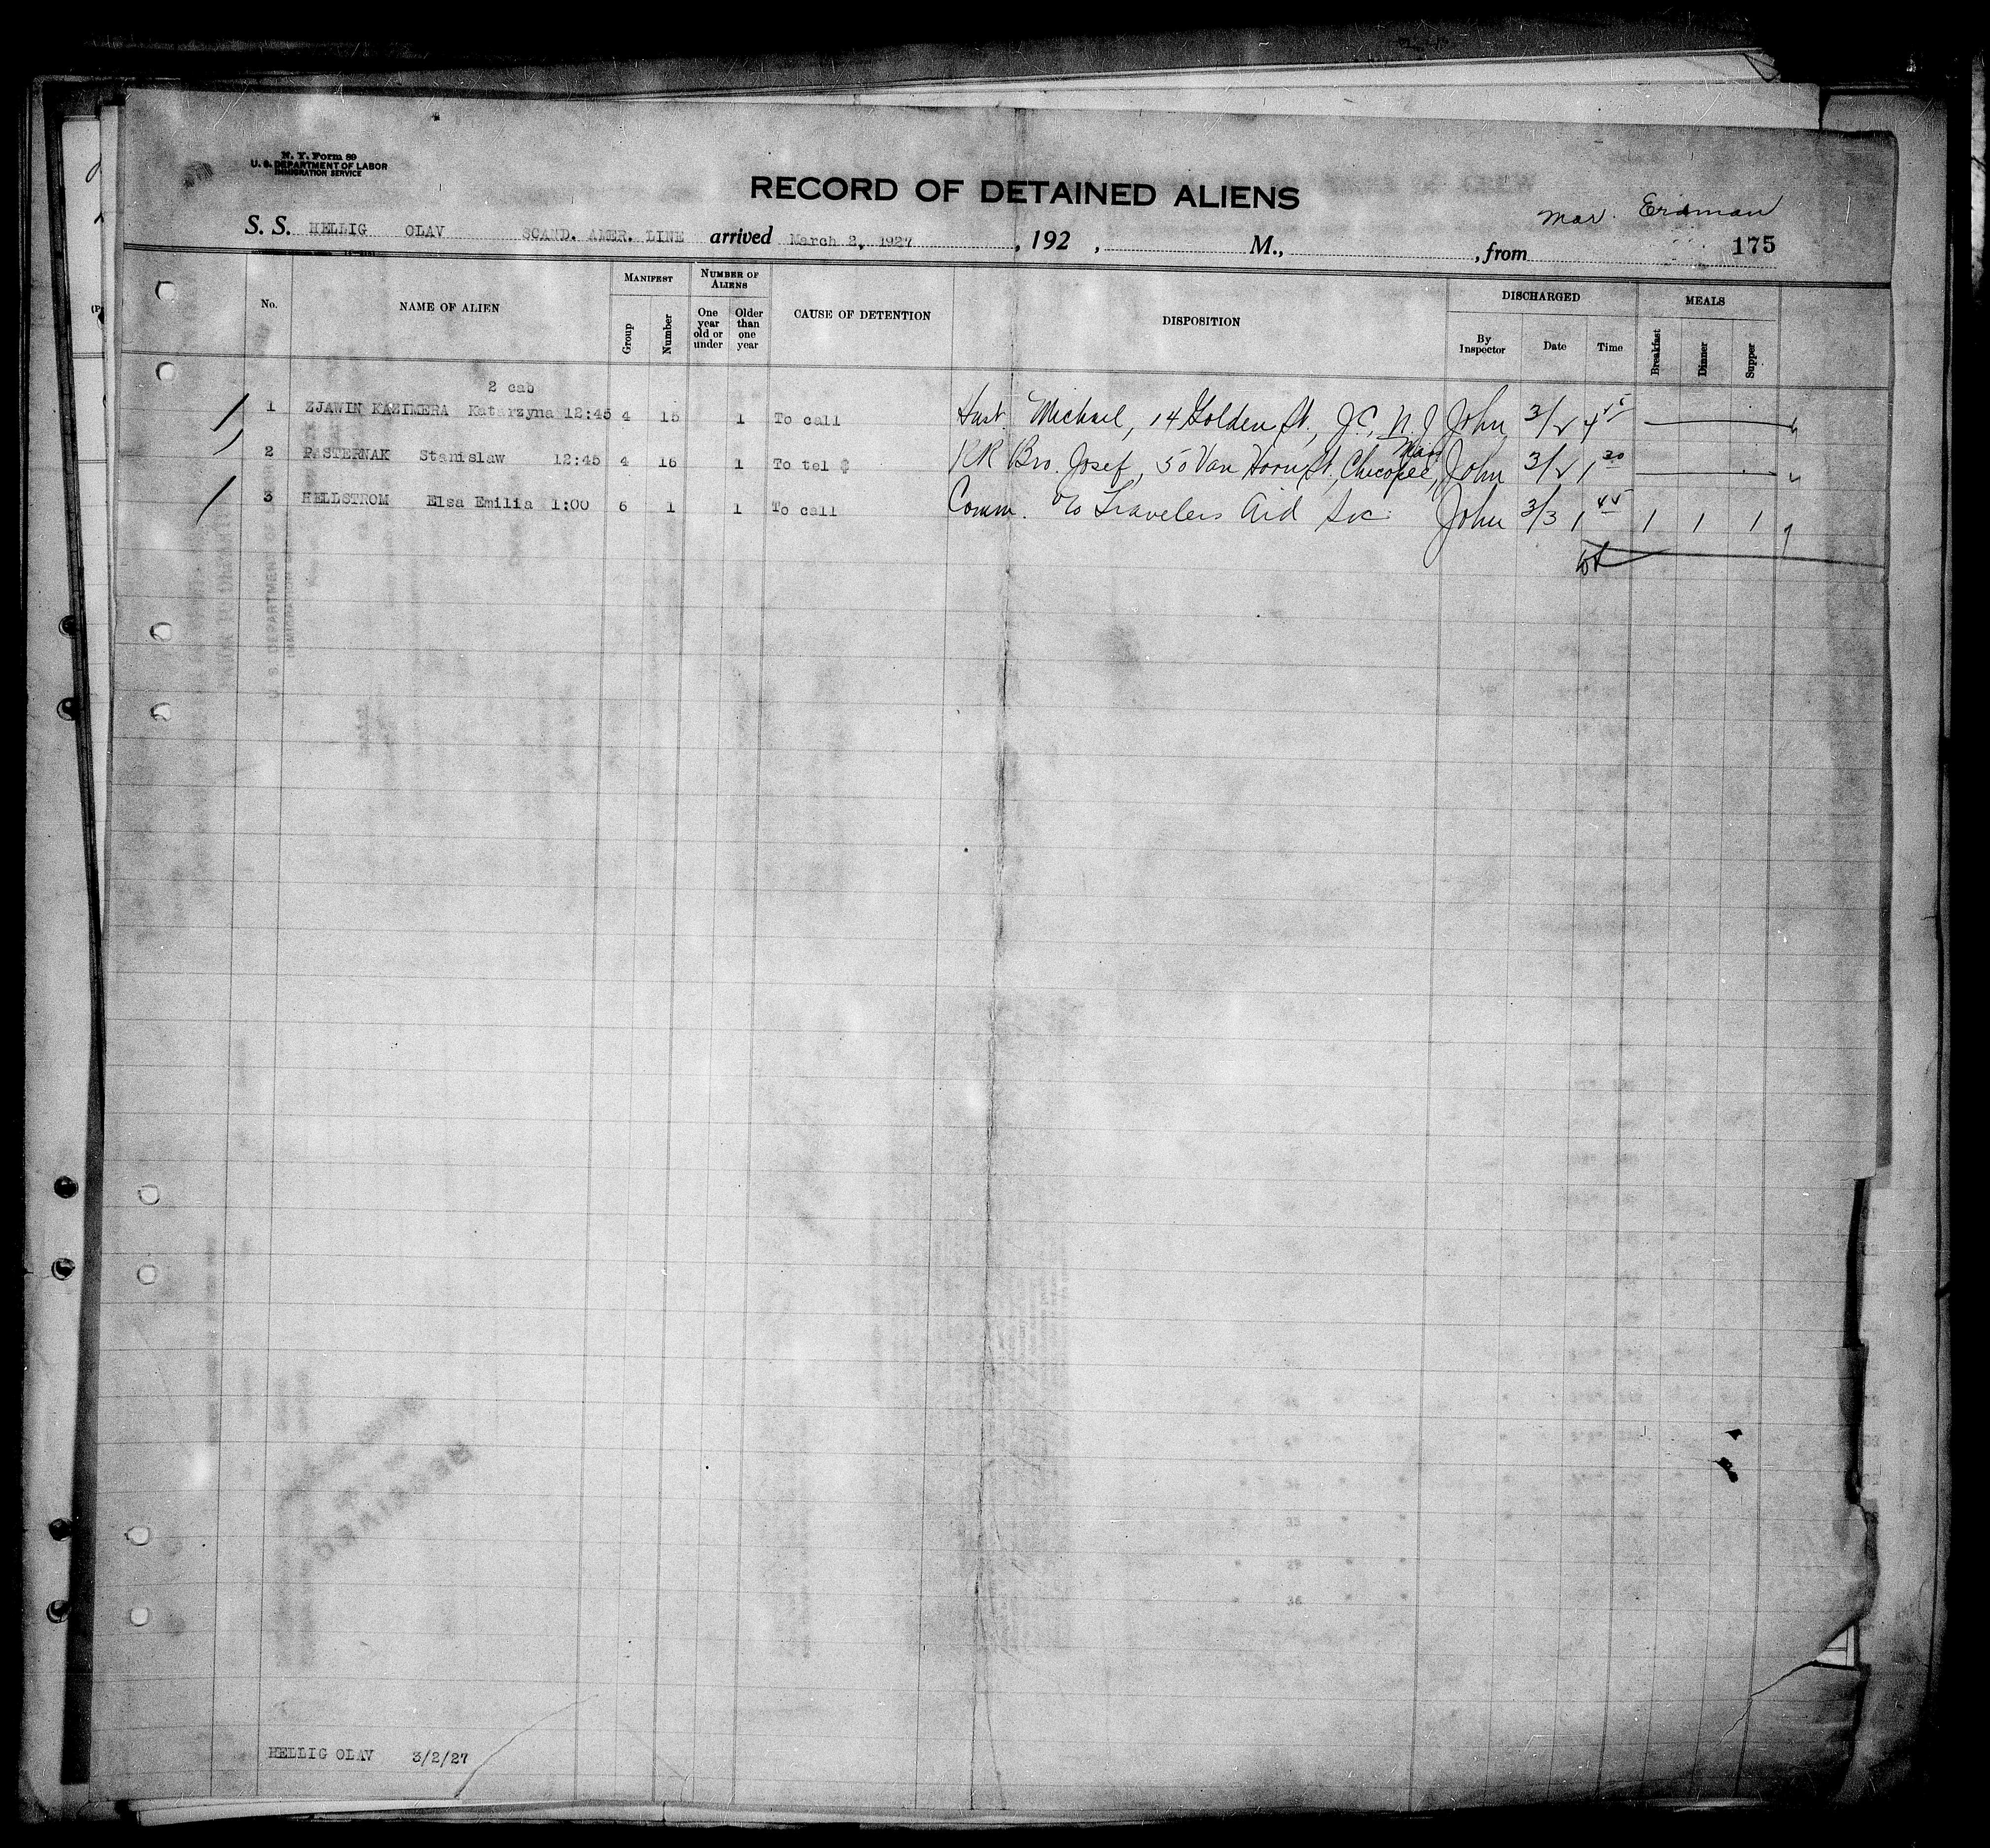 N. Y. Form 89
U. S. DEPARTMENT OF LABOR
IMMIGRATION SERVICE
RECORD OF DETAINED ALIENS
Mar. Erdman
S. S. HELLIG OLAV SCAND. AMER. LINE arrived March 2, 1927, 192 , M., , from 175
No. NAME OF ALIEN MANIFEST Group Number NUMBER OF ALIENS One year old or under Older than one year CAUSE OF DETENTION DISPOSITION DISCHARGED By Inspector Date Time MEALS Breakfast Dinner Supper
2 cab
1 ZJAWIN KAZIMERA Katarzyna 12:45 4 15 1 To call Michael, 14 Golden St., J.C., N.J. John 3/2 4 45
2 PASTERNAK Stanislaw 12:45 4 16 1 To tel $ RR Bro. Josef, 50 Van Horn St, Chicopee, Mass John 3/2 1 30
3 HELLSTROM Elsa Emilia 1:00 6 1 1 To call Comm. c/o Travelers Aid Soc John 3/3 1 45 1 1 1
HELLIG OLAV 3/2/27